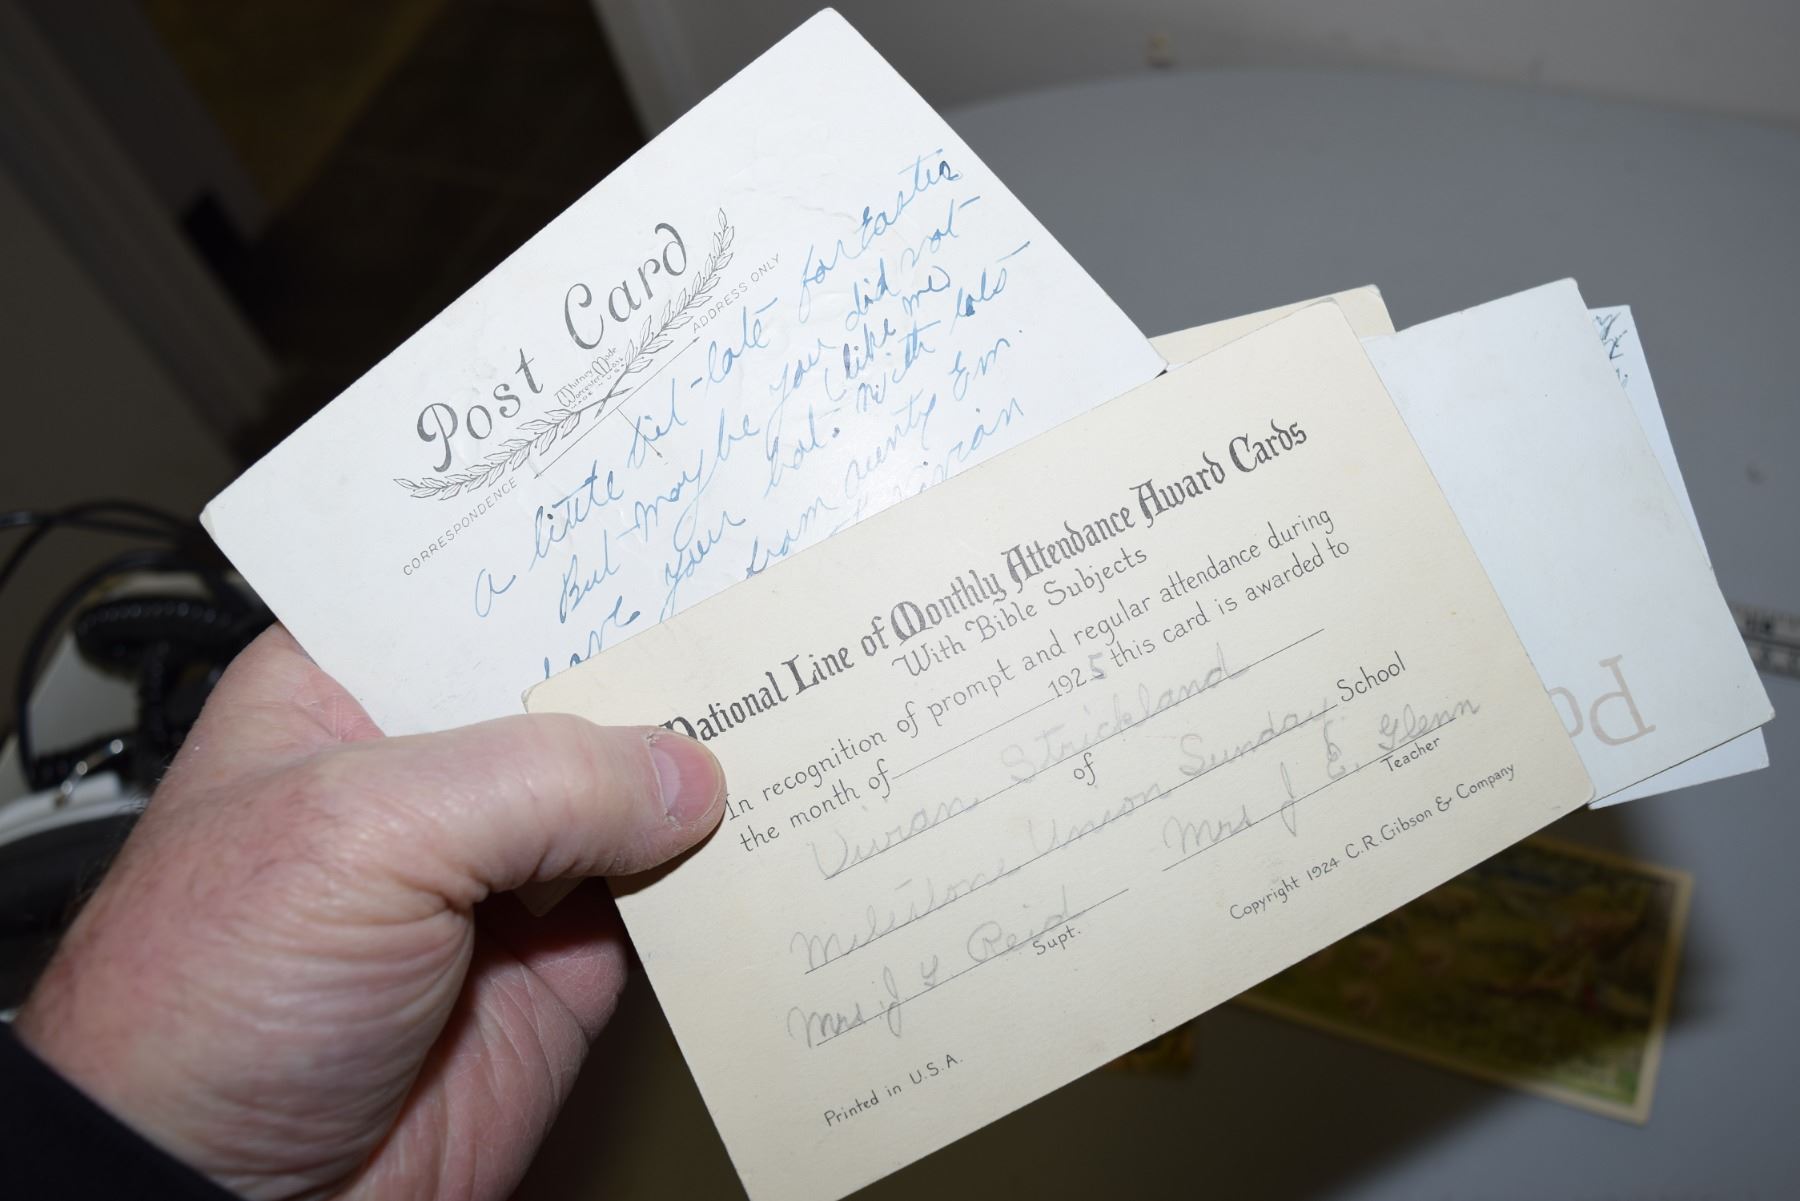 Post Card
Whitney Made
Worcester, Mass.
CORRESPONDENCE
ADDRESS ONLY
A little bit-late for Easter
But-maybe you did not
have your hat. (like me)
With lots
from aunty Em.
Vivian
National Line of Monthly Attendance Award Cards
With Bible Subjects
In recognition of prompt and regular attendance during
the month of 1925 this card is awarded to
Vivian Strickland
of
Milestone Union Sunday School
Mrs J Y Reid Mrs J E. Glenn
Supt. Teacher
Printed in U.S.A. Copyright 1924 C.R. Gibson & Company
Po